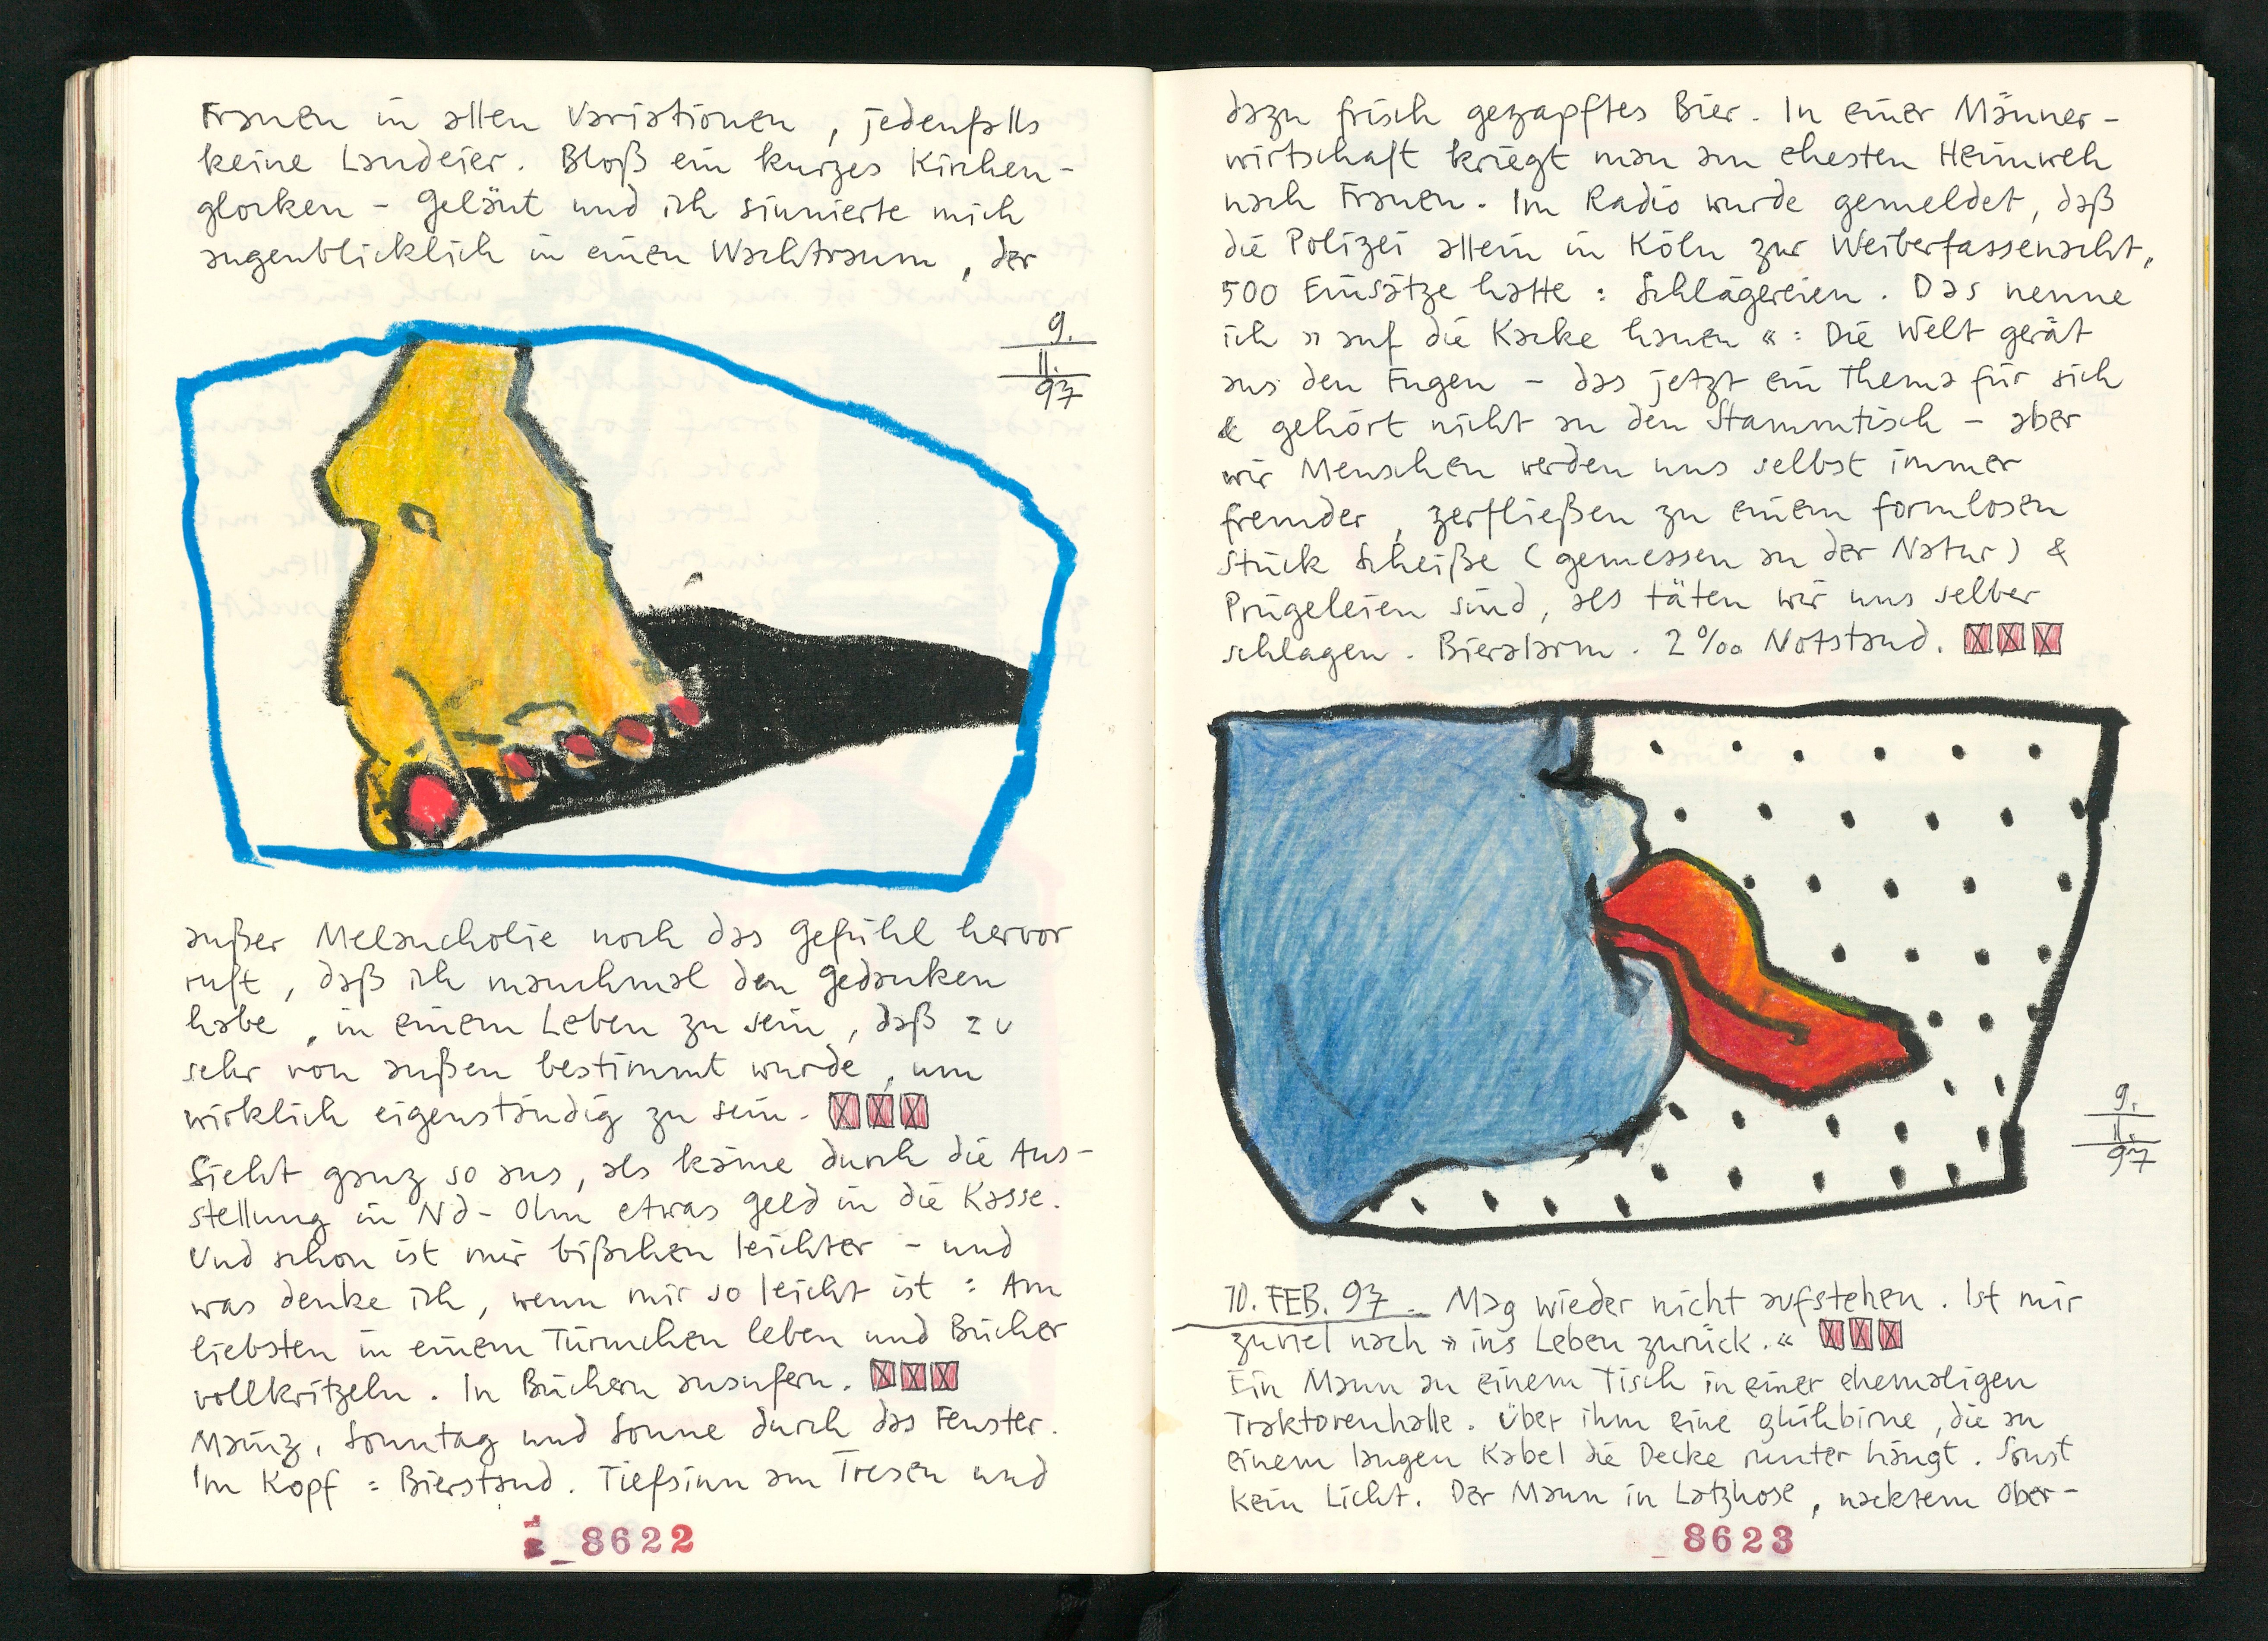 Frauen in allen Variationen, jedenfalls
keine Landeier. Bloß ein kurzes Kirchen-
glocken-Geläut und ich sinnierte mich
augenblicklich in einen Wachtraum, der
9.
II.
97
außer Melancholie noch das Gefühl hervor
ruft, daß ich manchmal den Gedanken
habe, in einem Leben zu sein, daß zu
sehr von außen bestimmt wurde, um
wirklich eigenständig zu sein. XXX
Sieht ganz so aus, als käme durch die Aus-
stellung in Nd-Olm etwas Geld in die Kasse.
Und schon ist mir bißchen leichter - und
was denke ich, wenn mir so leicht ist: Am
liebsten in einem Türmchen leben und Bücher
vollkritzeln. In Büchern ausufern. XXX
Mainz, Sonntag und Sonne durch das Fenster.
Im Kopf: Bierstand. Tiefsinn am Tresen und
8622
dazu frisch gezapftes Bier. In einer Männer-
wirtschaft kriegt man am ehesten Heimweh
nach Frauen. Im Radio wurde gemeldet, daß
die Polizei allein in Köln zur Weiberfassenacht,
500 Einsätze hatte: Schlägereien. Das nenne
ich »auf die Kacke hauen«: Die Welt gerät
aus den Fugen - das jetzt ein Thema für sich
& gehört nicht an den Stammtisch - aber
wir Menschen werden uns selbst immer
fremder, zerfließen zu einem formlosen
Stück Scheiße (gemessen an der Natur) &
Prügeleien sind, als täten wir uns selber
schlagen. Bieralarm. 2‰ Notstand. XXX
9.
II.
97
10. FEB. 97. Mag wieder nicht aufstehen. Ist mir
zuviel nach »ins Leben zurück.« XXX
Ein Mann an einem Tisch in einer ehemaligen
Traktorenhalle. Über ihm eine Glühbirne, die an
einem langen Kabel die Decke runter hängt. Sonst
kein Licht. Der Mann in Latzhose, nacktem Ober-
8623